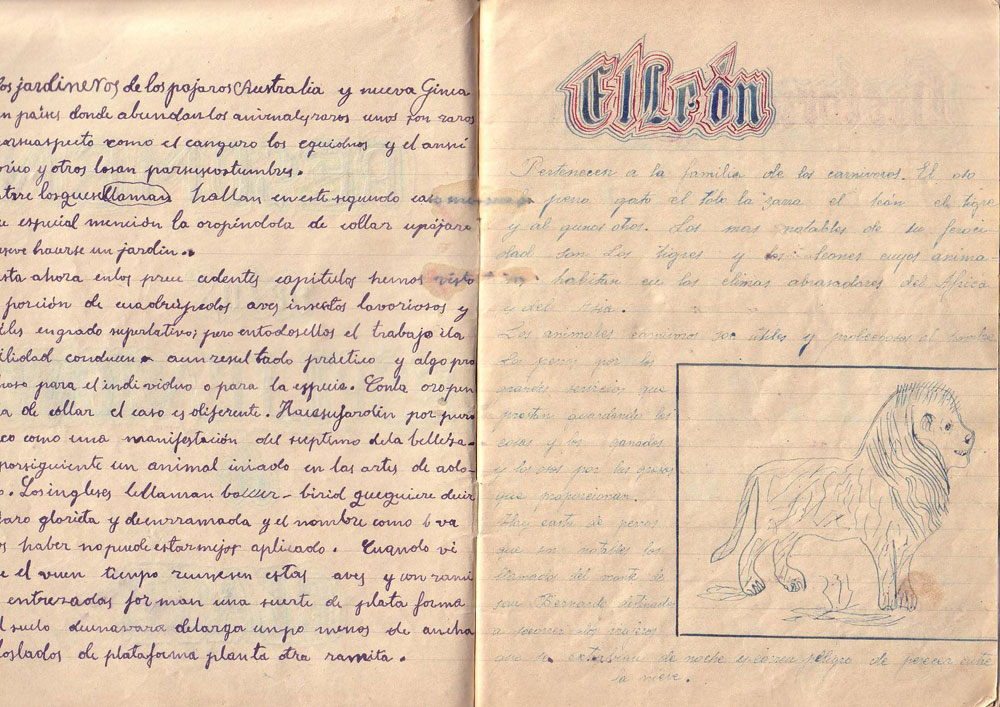 os jardineros de los pajaros Australia y nueva Ginea
n paises donde abundan los animales raros unos son raros
por su aspecto como el canguro los equidnos y el anni
orinco y otros losan por sus costumbres.
ntre los quese llaman hallan en este segundo caso
e especial mención la oropéndola de collar u pájaro
hacerse un jardin.
sta ahora en los prece cidentes capitulos hemos visto
porción de cuadrúpedos aves insectos lavoriosos y
tiles en grado superlativo; pero en todos ellos el trabajo ila
ilidad conducen a un resultado práctico y algo pro
hoso para el individuo o para la especie. Con la oropen
a de collar el caso es diferente. Hace su jardin por puro
co como una manifestación del septimo de la belleza
por siguiente un animal iniado en las artes de ado-
o. Los ingleses le llaman bower-birid que quiere decir
jaro glorieta y de enrramada y el nombre como b va
os haber no puede estar mejor aplicado. Cuando vi
e el vuen tiempo reunesen estas aves y con rami
entrezadas for man una suerte de plata forma
l suelo de una vara de larga un po menos de ancha
los lados de plataforma planta otra ramita.
El León
Pertenecen a la familia de los carnivoros. El oso
perro gato el lobo la zorra el león el tigre
y al gunos otros. Los mas notables de su feroci
dad son los tigres y los leones cuyos anima
habitan en los climas abrasadores del Africa
y del Asia.
Los animales carnivoros son útiles y
Los perros por los
grandes servicios que
prestan guardando las
casas y los ganados
y los osos por las grasas
que proporcionan.
Hay casta de perros
que son notables los
llamados del monte de
san Bernardo
a socorrer los
que se extravian de noche y corren peligro de perecer entre
la nieve.